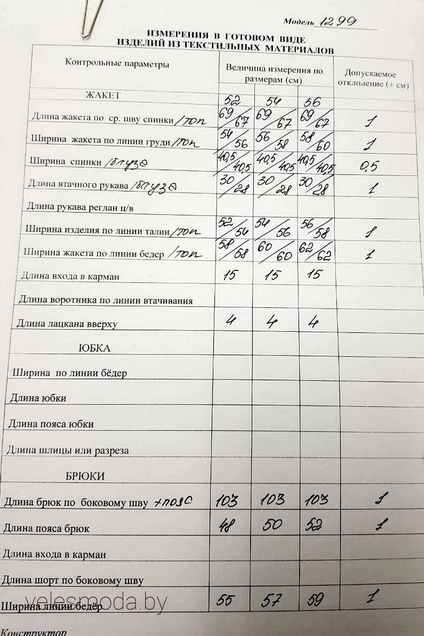 Модель 1299
ИЗМЕРЕНИЯ В ГОТОВОМ ВИДЕ
ИЗДЕЛИЙ ИЗ ТЕКСТИЛЬНЫХ МАТЕРИАЛОВ
Контрольные параметры Величина измерения по размерам (см) Допускаемое отклонение (± см)
ЖАКЕТ 52 54 56
Длина жакета по ср. шву спинки /топ 69/67 69/67 69/67 1
Ширина жакета по линии груди /топ 54/56 56/58 58/60 1
Ширина спинки /блуза 40,5/40,5 40,5/40,5 40,5/40,5 0,5
Длина втачного рукава /блуза 30/28 30/28 30/28 1
Длина рукава реглан ц/в
Ширина изделия по линии талии /топ 52/54 54/56 56/58 1
Ширина жакета по линии бедер /топ 58/58 60/60 62/62 1
Длина входа в карман 15 15 15
Длина воротника по линии втачивания
Длина лацкана вверху 4 4 4
ЮБКА
Ширина по линии бёдер
Длина юбки
Длина пояса юбки
Длина шлицы или разреза
БРЮКИ
Длина брюк по боковому шву +пояс 103 103 103 1
Длина пояса брюк 48 50 52 1
Длина входа в карман
Длина шорт по боковому шву
Ширина линии бедёр 55 57 59 1
velesmoda.by
Конструктор